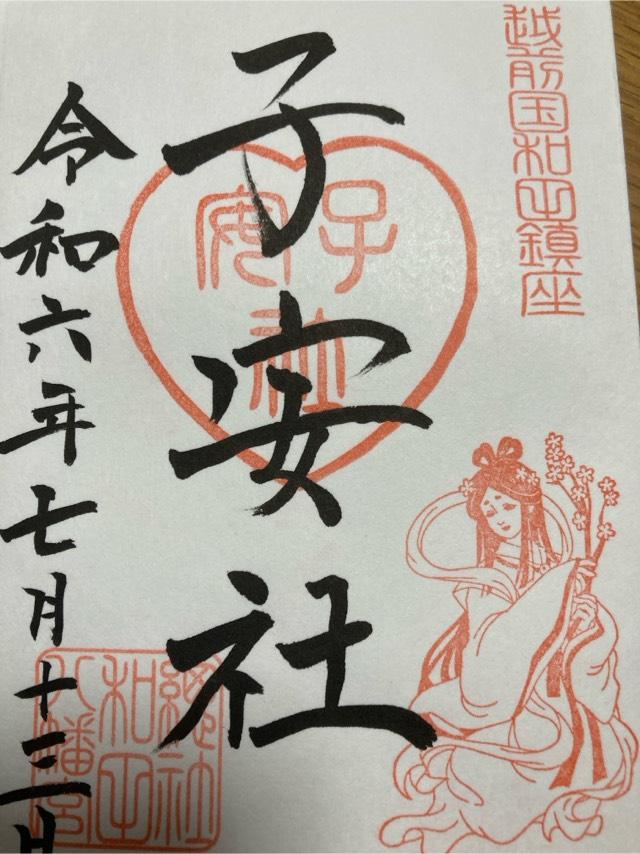 越前国和田鎮座
子安社
子安社
令和六年七月十三日
總社
和田
八幡宮